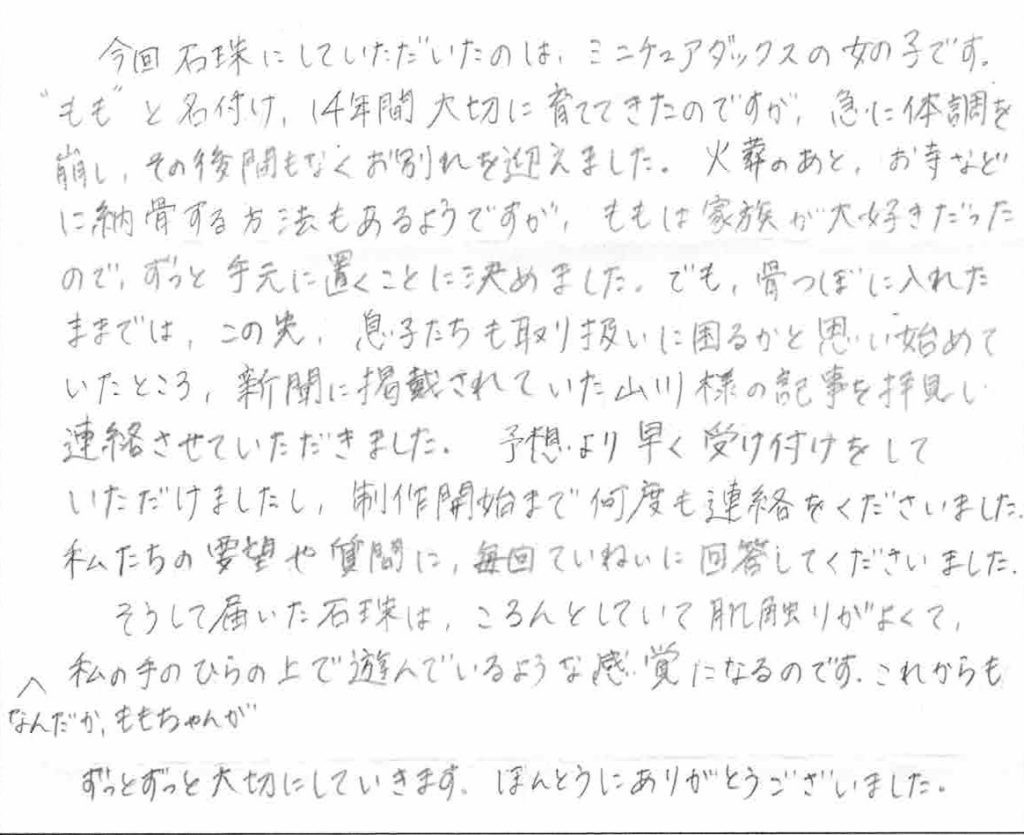 今回石珠にしていただいたのは、ミニチュアダックスの女の子です。
"もも"と名付け、14年間大切に育ててきたのですが、急に体調を
崩し、その後間もなくお別れを迎えました。火葬のあと、お寺など
に納骨する方法もあるようですが、ももは家族が大好きだった
ので、ずっと手元に置くことに決めました。でも、骨つぼに入れた
ままでは、この先、息子たちも取り扱いに困るかと思い始めて
いたところ、新聞に掲載されていた山川様の記事を拝見し
連絡させていただきました。予想より早く受け付けをして
いただけましたし、制作開始まで何度も連絡をくださいました。
私たちの要望や質問に、毎回ていねいに回答してくださいました。
そうして届いた石珠は、ころんとしていて肌触りがよくて、
私の手のひらの上で遊んでいるような感覚になるのです。これからも
なんだか、ももちゃんが
ずっとずっと大切にしていきます。ほんとうにありがとうございました。